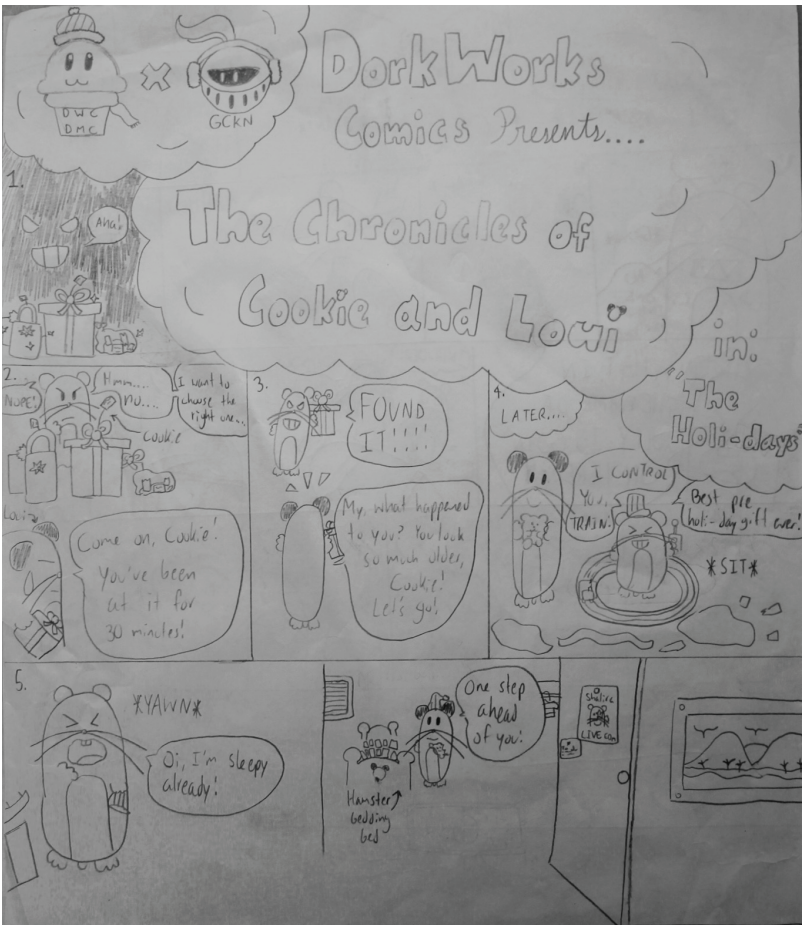 DWC
DMC
GCKN
DorkWorks
Comics Presents....
The Chronicles of
Cookie and Loui
in:
"The
Holi-days"
1.
Aha!
2.
NOPE!
Hmm....
no....
I want to
choose the
right one...
Cookie
Loui
Come on, Cookie!
You've been
at it for
30 minutes!
3.
FOUND
IT!!!!
My, what happened
to you? You look
so much older,
Cookie!
Let's go!
4.
LATER....
I CONTROL
YOU,
TRAIN!
Best pre
holi-day gift ever!
*SIT*
5.
*YAWN*
Oi, I'm sleepy
already!
One step
ahead
of you!
Hamster
bedding
bed
LIVE